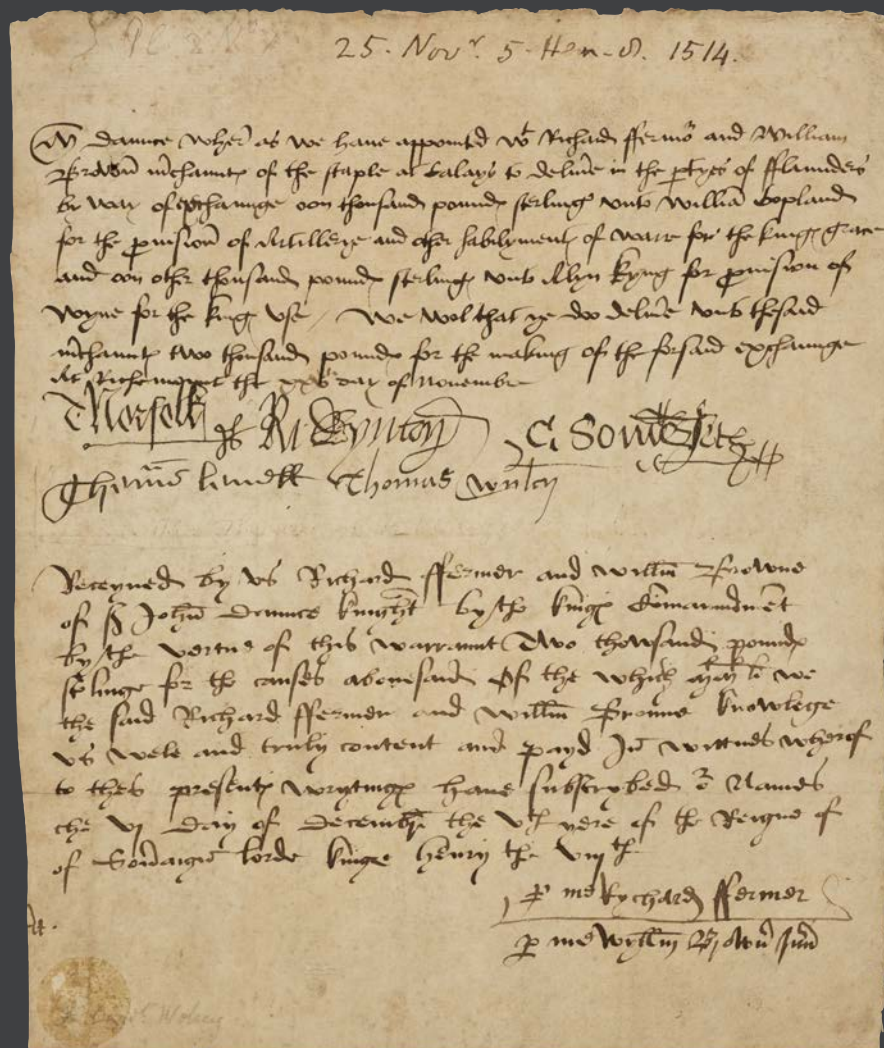 25. Novr. 5. Hen. 8. 1514.
M daunce where as we have appointed wt Richard ffermor and William
Browñ mchauntes of the staple at Calays to delivre in the ptyes of fflaunders
by way of exchaunge oon thousand poundes sterling unto William Copland
for the pvision of Artillerye and other habilymentes of warre for the kinges grace
and oon other thousand poundes sterling unto Alyn kyng for pvision of
wyne for the kinges use / we wol that ye doo delivre unto thesaid
mchauntes two thousand poundes for the making of the forsaid exchaunge
At Richemount the day of novembre
T Norfolk Ri Wynton C. Somerset
Thomas lovell Thomas
Receyued by vs Richard ffermer and willm Browne
of Sr John daunce knyght by the kinges
by the vertue of this warraunt Two thowsand poundes
sterlinge for the causes abouesaid Of the which we
the said Richard ffermer and willm Browne knowlege
vs wele and truly content and payd In wittnes wherof
to thes presentes wrytinges haue subscrybed Names
the vj day of decembr the vth yere of the Reigne of
of lorde kinge henry the viijth
p me Rychard ffermer
p me Wyllm Browñ
Wolsey